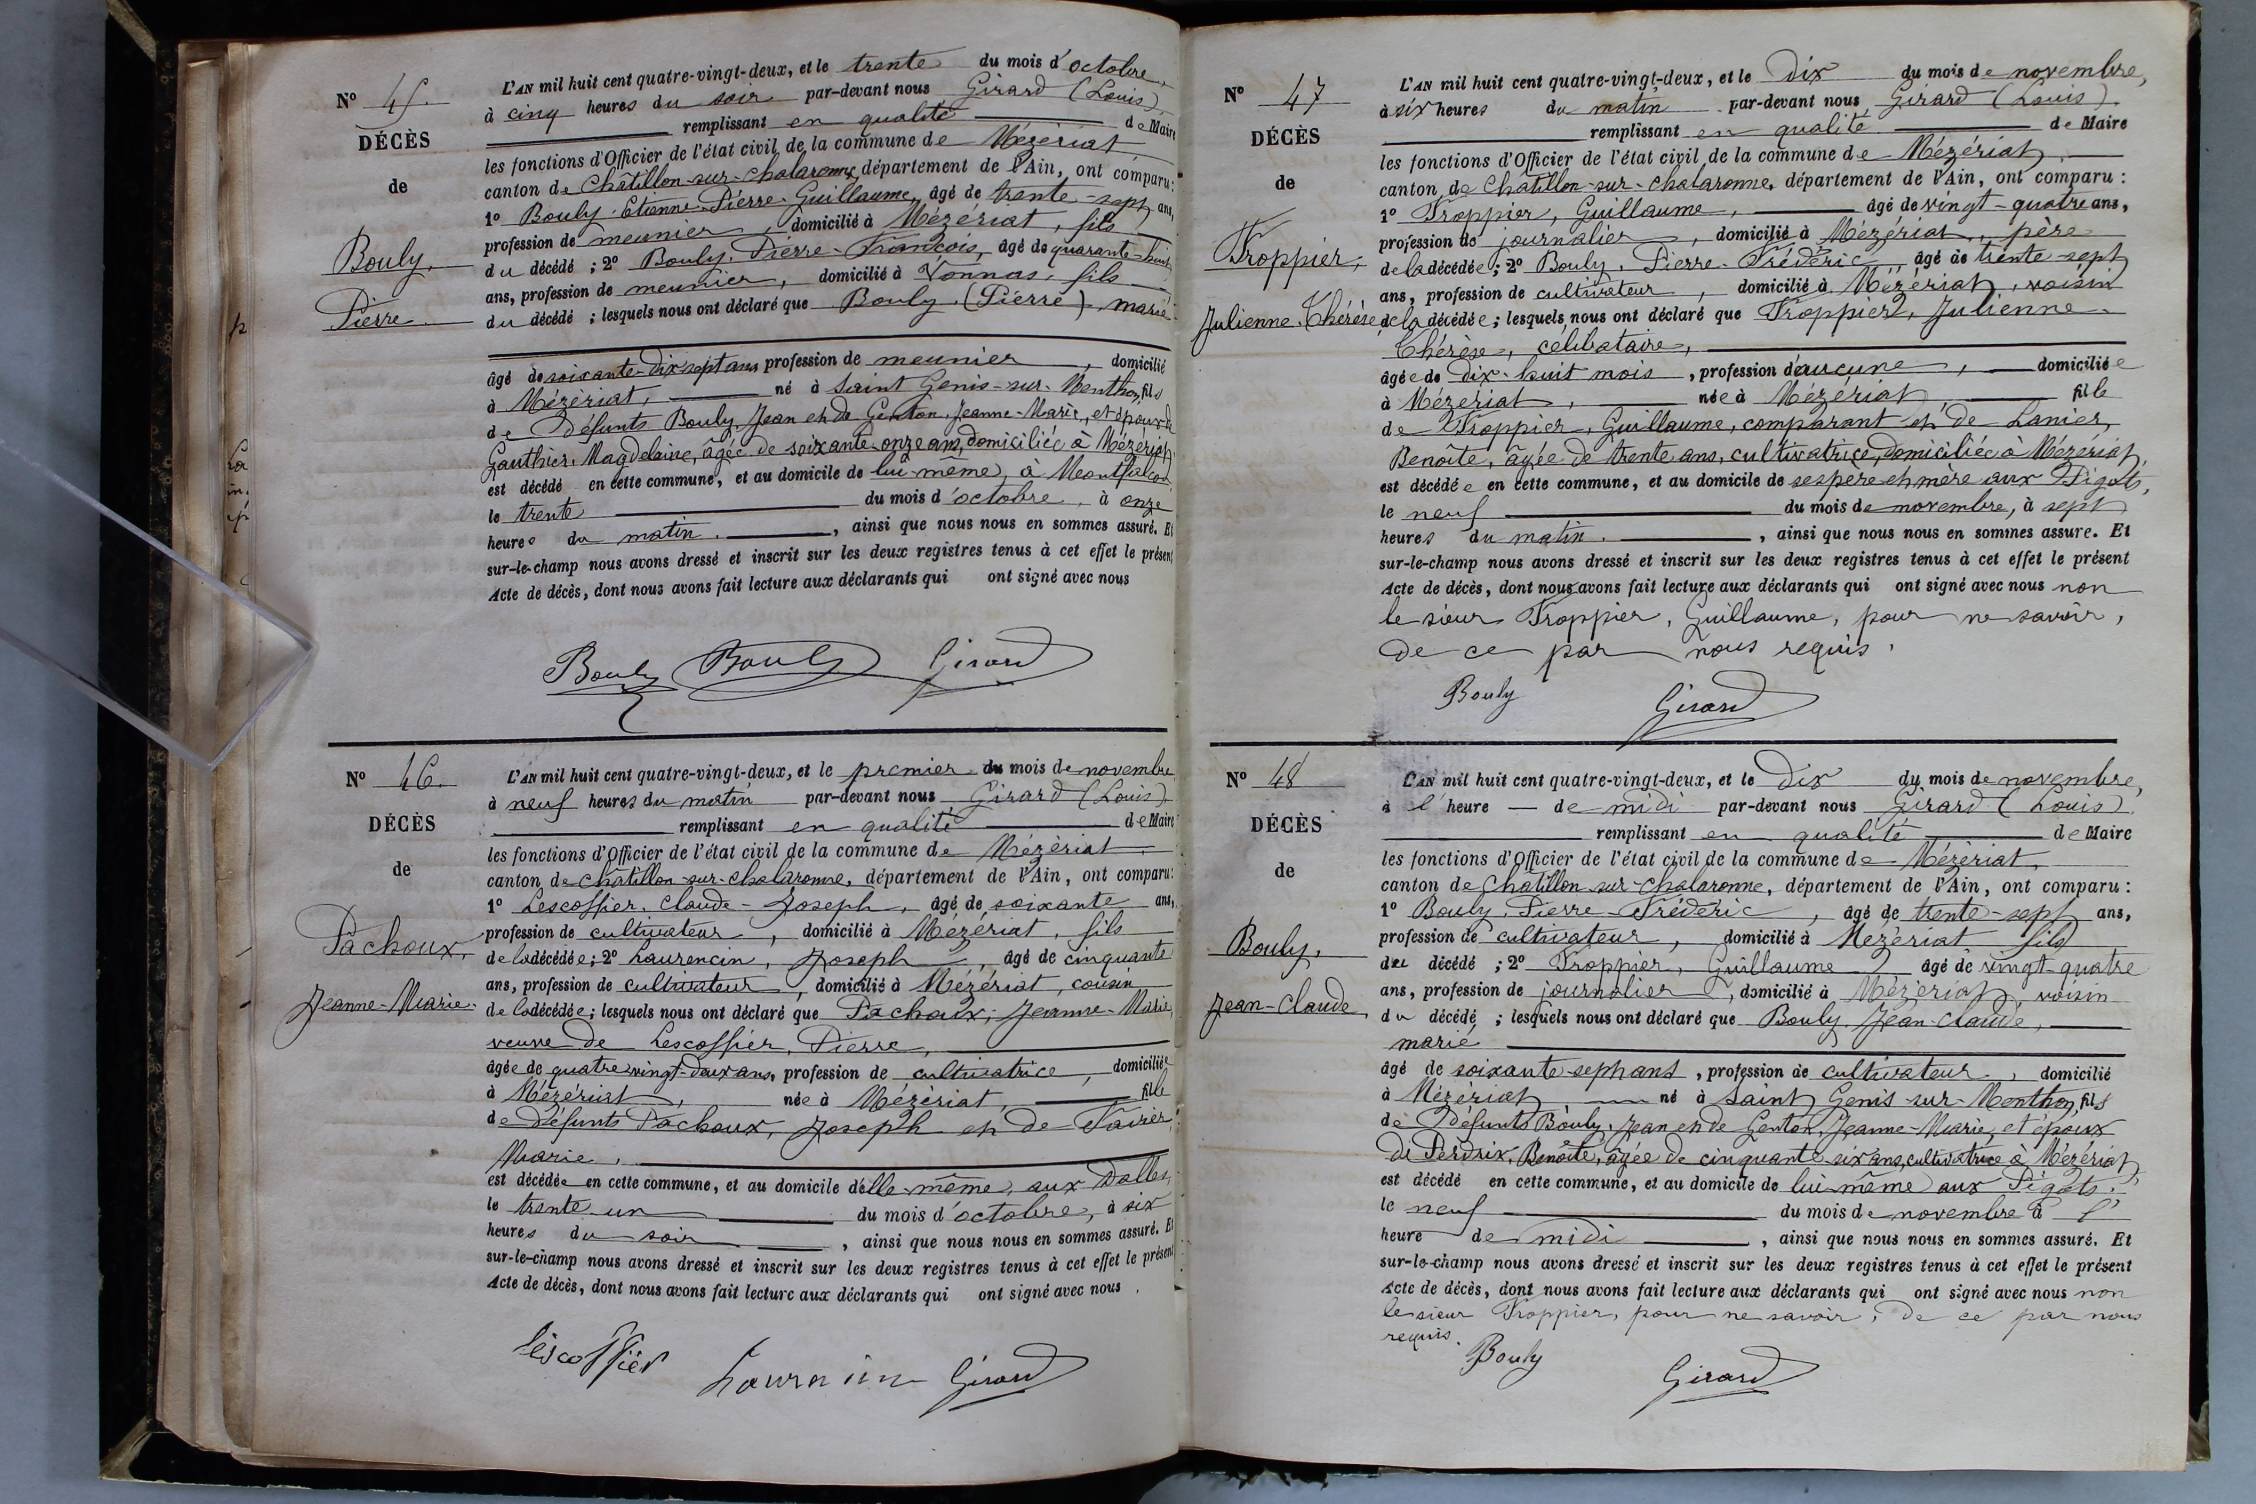 Nº 45.
DÉCÈS
de
Bouly,
Pierre
L'AN mil huit cent quatre-vingt-deux, et le trente du mois d'octobre,
à cinq heures du soir par-devant nous Girard (Louis)
remplissant en qualité de Maire
les fonctions d'Officier de l'état civil de la commune de Mézériat
canton de Châtillon-sur-Chalaronne, département de l'Ain, ont comparu:
1º Bouly, Etienne-Pierre-Guillaume, âgé de trente-sept ans,
profession de meunier, domicilié à Mézériat, fils
du décédé ; 2º Bouly, Pierre-François, âgé de quarante-huit
ans, profession de meunier, domicilié à Vonnas, fils
du décédé ; lesquels nous ont déclaré que Bouly (Pierre), marié
âgé de soixante-dix-sept ans, profession de meunier, domicilié
à Mézériat, né à Saint Genis-sur-Menthon, fils
de défunts Bouly, Jean et de Genton, Jeanne-Marie, et époux de
Gauthier, Magdelaine, âgée de soixante-onze ans, domiciliée à Mézériat,
est décédé en cette commune, et au domicile de lui-même, à Montfalcon
le trente du mois d'octobre, à onze
heures du matin, ainsi que nous nous en sommes assuré. Et
sur-le-champ nous avons dressé et inscrit sur les deux registres tenus à cet effet le présent
Acte de décès, dont nous avons fait lecture aux déclarants qui ont signé avec nous
Bouly Bouly Girard
Nº 46.
DÉCÈS
de
Pachoux,
Jeanne-Marie
L'AN mil huit cent quatre-vingt-deux, et le premier du mois de novembre
à neuf heures du matin par-devant nous Girard (Louis)
remplissant en qualité de Maire
les fonctions d'Officier de l'état civil de la commune de Mézériat
canton de Châtillon-sur-Chalaronne, département de l'Ain, ont comparu:
1º Lescoffier, Claude-Joseph, âgé de soixante ans,
profession de cultivateur, domicilié à Mézériat, fils
de la décédée; 2º Laurencin, Joseph, âgé de cinquante
ans, profession de cultivateur, domicilié à Mézériat, cousin
de la décédée; lesquels nous ont déclaré que Pachoux, Jeanne-Marie,
veuve de Lescoffier, Pierre,
âgée de quatre vingt-deux ans, profession de cultivatrice, domiciliée
à Mézériat, née à Mézériat, fille
de défunts Pachoux, Joseph et de Favier,
Marie,
est décédée en cette commune, et au domicile d'elle-même, aux Dalles,
le trente un du mois d'octobre, à six
heures du soir, ainsi que nous nous en sommes assuré. Et
sur-le-champ nous avons dressé et inscrit sur les deux registres tenus à cet effet le présent
Acte de décès, dont nous avons fait lecture aux déclarants qui ont signé avec nous.
Lescoffier Laurencin Girard
Nº 47
DÉCÈS
de
Froppier,
Julienne-Thérèse
L'AN mil huit cent quatre-vingt-deux, et le dix du mois de novembre,
à six heures du matin par-devant nous Girard (Louis).
remplissant en qualité de Maire
les fonctions d'Officier de l'état civil de la commune de Mézériat,
canton de Châtillon-sur-Chalaronne, département de l'Ain, ont comparu :
1º Froppier, Guillaume, âgé de vingt-quatre ans,
profession de journalier, domicilié à Mézériat, père
de la décédée; 2º Bouly, Pierre-Frédéric âgé de trente-sept
ans, profession de cultivateur, domicilié à Mézériat, voisin
de la décédée; lesquels nous ont déclaré que Froppier, Julienne-
Thérèse, célibataire,
âgée de dix-huit mois, profession d'aucune, domiciliée
à Mézériat, née à Mézériat fille
de Froppier, Guillaume, comparant et de Lanier,
Benoîte, âgée de trente ans, cultivatrice, domiciliée à Mézériat,
est décédée en cette commune, et au domicile de ses père et mère aux Pigots,
le neuf du mois de novembre, à sept
heures du matin, ainsi que nous nous en sommes assuré. Et
sur-le-champ nous avons dressé et inscrit sur les deux registres tenus à cet effet le présent
Acte de décès, dont nous avons fait lecture aux déclarants qui ont signé avec nous non
le sieur Froppier, Guillaume, pour ne savoir,
de ce par nous requis.
Bouly Girard
Nº 48
DÉCÈS
de
Bouly,
Jean-Claude,
L'AN mil huit cent quatre-vingt-deux, et le dix du mois de novembre,
à l'heure — de midi par-devant nous Girard (Louis)
remplissant en qualité de Maire
les fonctions d'Officier de l'état civil de la commune de Mézériat,
canton de Châtillon-sur-Chalaronne, département de l'Ain, ont comparu :
1º Bouly, Pierre-Frédéric, âgé de trente-sept ans,
profession de cultivateur, domicilié à Mézériat, fils
du décédé ; 2º Froppier, Guillaume âgé de vingt-quatre
ans, profession de journalier, domicilié à Mézériat, voisin
du décédé ; lesquels nous ont déclaré que Bouly, Jean-Claude,
marié
âgé de soixante-sept ans, profession de cultivateur, domicilié
à Mézériat né à Saint Genis-sur-Menthon, fils
de défunts Bouly, Jean et de Genton, Jeanne-Marie, et époux
de Perdrix, Benoîte, âgée de cinquante-six ans, cultivatrice à Mézériat,
est décédé en cette commune, et au domicile de lui-même aux Pigots,
le neuf du mois de novembre à l'
heure de midi, ainsi que nous nous en sommes assuré. Et
sur-le-champ nous avons dressé et inscrit sur les deux registres tenus à cet effet le présent
Acte de décès, dont nous avons fait lecture aux déclarants qui ont signé avec nous non
le sieur Froppier, pour ne savoir, de ce par nous
requis.
Bouly Girard